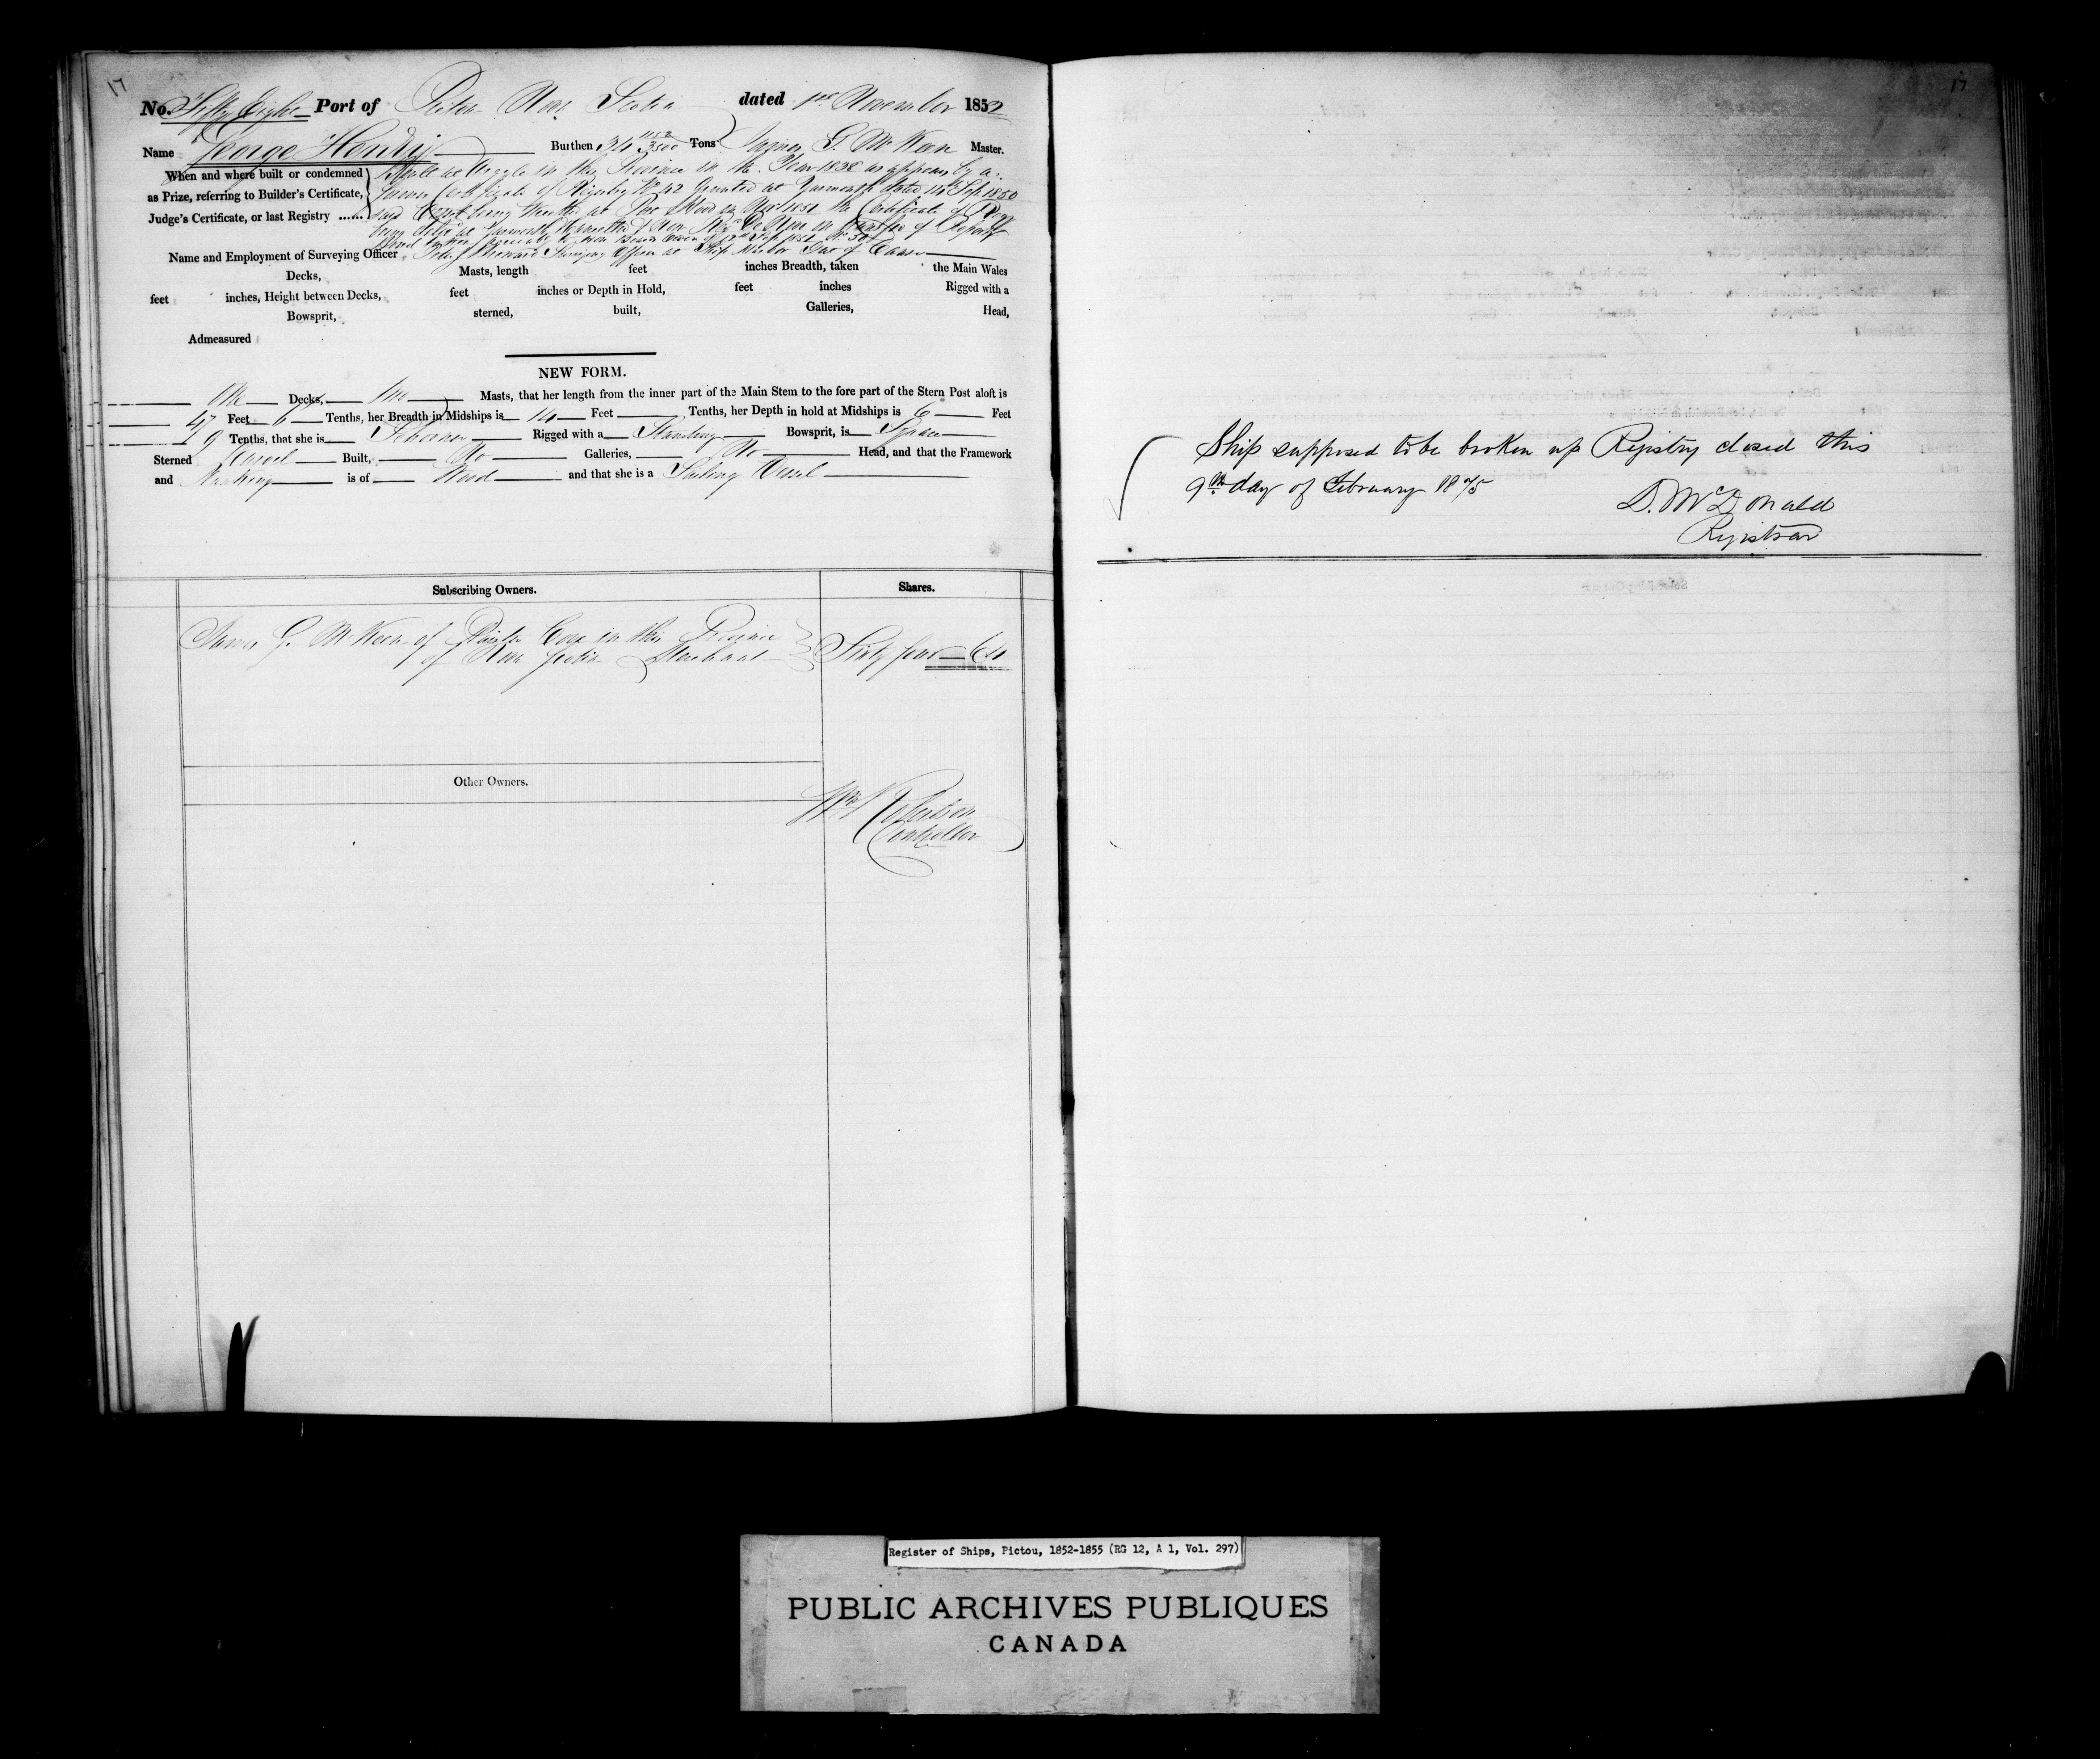 17
No. Fifty Eight Port of Pictou Nova Scotia dated 1st November 1852
Name George Henry Burthen 34 1152/3500 Tons James G. McKeen Master.
When and where built or condemned
as Prize, referring to Builder's Certificate,
Judge's Certificate, or last Registry ......
Built at Argyle in this Province in the Year 1838 as appears by a
former Certificate of Registry No 42 Granted at Yarmouth dated 14th Sep 1850
said Vessel being at in 1851 the Certificate of
being at Yarmouth
Name and Employment of Surveying Officer Surveying Officer at Ship Harbor of Canso
Decks, Masts, length feet inches Breadth, taken the Main Wales
feet inches, Height between Decks, feet inches or Depth in Hold, feet inches Rigged with a
Bowsprit, sterned, built, Galleries, Head,
Admeasured
NEW FORM.
One Decks, Two Masts, that her length from the inner part of the Main Stem to the fore part of the Stern Post aloft is
47 Feet 6 Tenths, her Breadth in Midships is 14 Feet Tenths, her Depth in hold at Midships is 6 Feet
9 Tenths, that she is Schooner Rigged with a Standing Bowsprit, is Square
Sterned Carvel Built, No Galleries, No Head, and that the Framework
and Planking is of Wood and that she is a Sailing Vessel
Subscribing Owners. Shares.
James G. McKeen of Plaister Cove in this Province
of Nova Scotia Merchant Sixty four 64
Other Owners.
Wm Robertson
Controller
17
Ship supposed to be broken up Registry closed this
9th day of February 1875
D. McDonald
Registrar
Register of Ships, Pictou, 1852-1855 (RG 12, A 1, Vol. 297)
PUBLIC ARCHIVES PUBLIQUES
CANADA